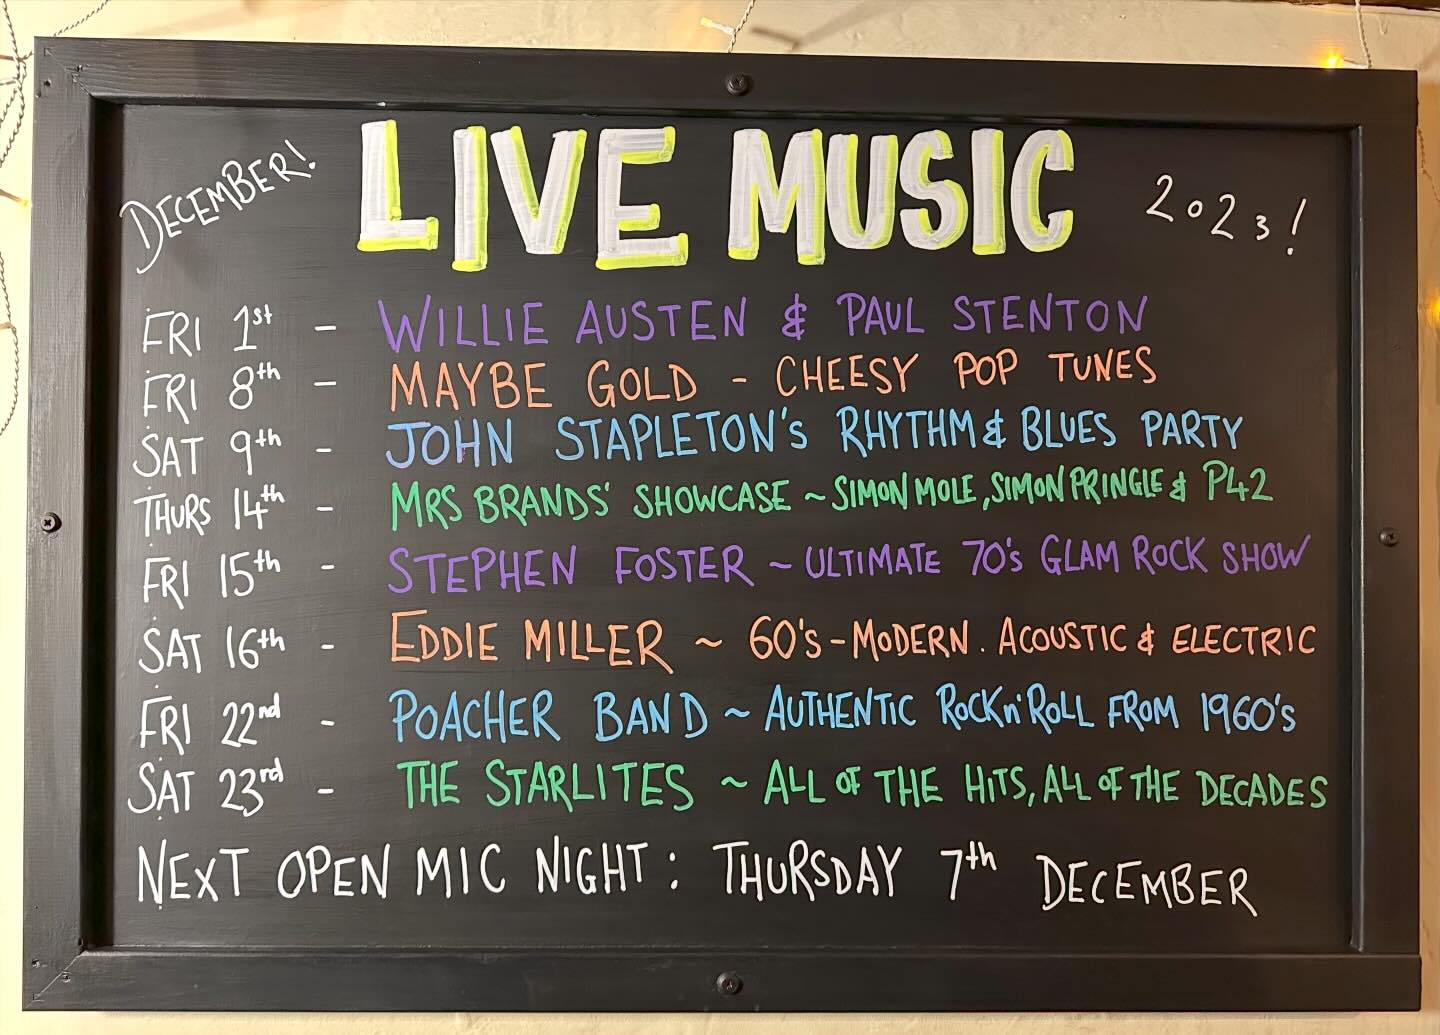 DECEMBER! LIVE MUSIC 2023!
FRI 1st - WILLIE AUSTEN & PAUL STENTON
FRI 8th - MAYBE GOLD - CHEESY POP TUNES
SAT 9th - JOHN STAPLETON'S RHYTHM & BLUES PARTY
THURS 14th - MRS BRANDS' SHOWCASE ~ SIMON MOLE, SIMON PRINGLE & P42
FRI 15th - STEPHEN FOSTER ~ ULTIMATE 70's GLAM ROCK SHOW
SAT 16th - EDDIE MILLER ~ 60's - MODERN. ACOUSTIC & ELECTRIC
FRI 22nd - POACHER BAND ~ AUTHENTIC ROCK n' ROLL FROM 1960's
SAT 23rd - THE STARLITES ~ ALL OF THE HITS, ALL OF THE DECADES
NEXT OPEN MIC NIGHT: THURSDAY 7th DECEMBER